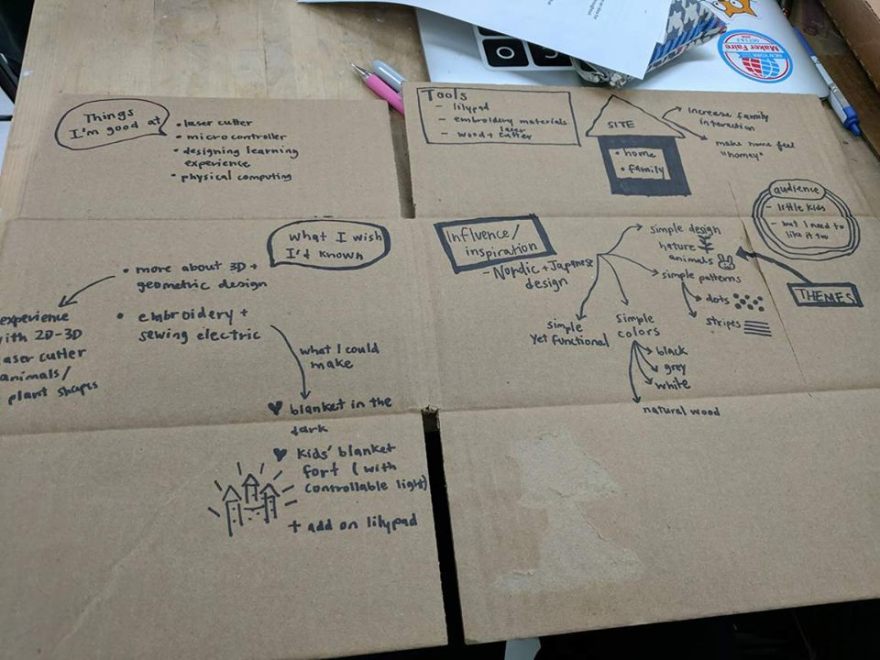 Things
I'm good at
• laser cutter
• microcontroller
• designing learning
experience
• physical computing
What I wish
I'd known
• more about 3D +
geometric design
experience
with 2D-3D
laser cutter
animals/
plant shapes
• embroidery +
sewing electric
what I could
make
blanket in the
dark
kids' blanket
fort (with
controllable light)
+ add on lilypad
Tools
- lilypad
- embroidery materials
- wood + laser
cutter
SITE
• home
• family
increase family
interaction
make home feel
"homey"
audience
- little kids
- but I need to
like it too
Influence/
inspiration
- Nordic + Japanese
design
simple design
nature
animals
simple patterns
dots
stripes
THEMES
simple
yet functional
simple
colors
black
grey
white
natural wood
Maker Faire